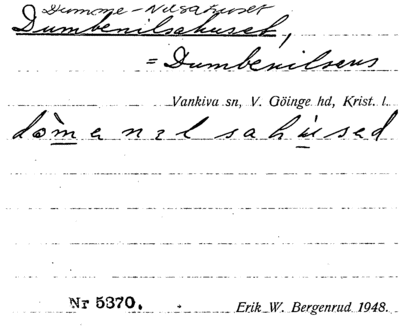 Dumme-Nilsahuset
Dumbenilsahuset,
= Dumbenilsens
Vankiva sn, V. Göinge hd, Krist. l.
dòmenɪlsahùsəd
Nr 5370.
Erik W. Bergenrud 1948.